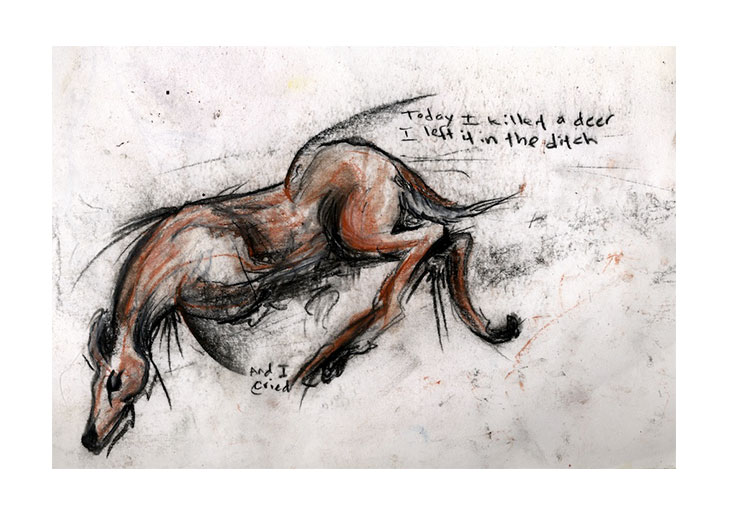 Today I killed a deer
I left it in the ditch
And I
Cried